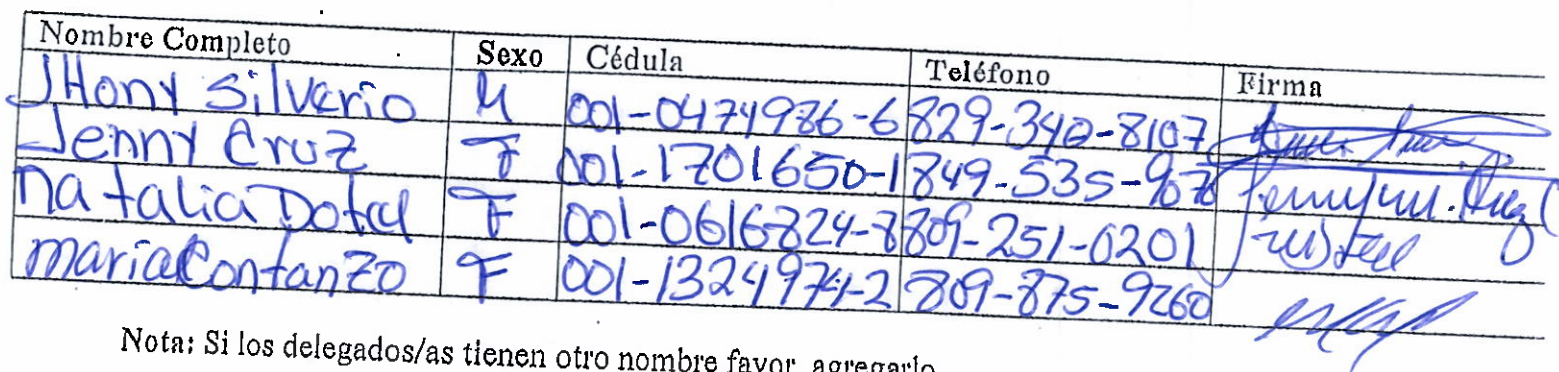 Nombre Completo Sexo Cédula Teléfono Firma
JHony Silverio M 001-0474986-6 829-340-8107
Jenny Cruz F 001-1701650-1 849-535-9070
natalia Dotel F 001-0616824-8 809-251-0201
maria Contanzo F 001-1324974-2 809-875-9260
Nota: Si los delegados/as tienen otro nombre favor agregarlo